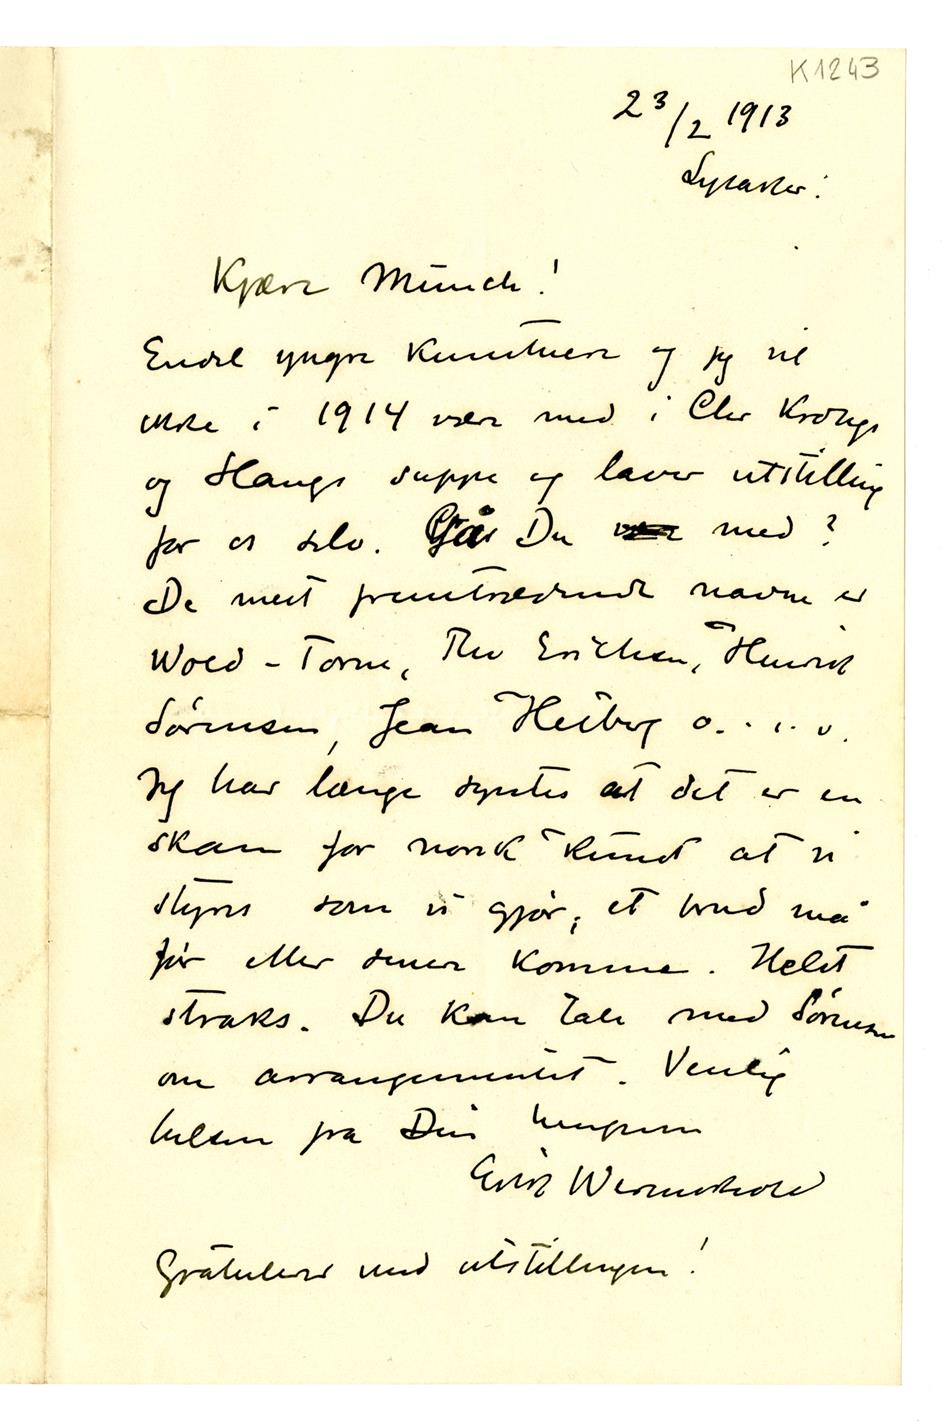 K1243
23/2 1913
Lysaker.
Kjære Munch!
Endel yngre Kunstnere og jeg vil
ikke i 1914 være med i Chr Krohgs
og Haugs suppe og laver utstilling
for os selv. Går Du med?
De mest fremtrædende navne er
Wold-Torne, Thv Erichsen, Henrik
Sørensen, Jean Heiberg o. s. v.
Jeg har længe syntes at det er en
skam for norsk kunst at vi
styres som vi gjør; et brud må
før eller senere komme. Helst
straks. Du kan tale med Sørensen
om arrangementet. Venlig
hilsen fra Din hengivne
Erik Werenskiold
Gratulerer med utstillingen!